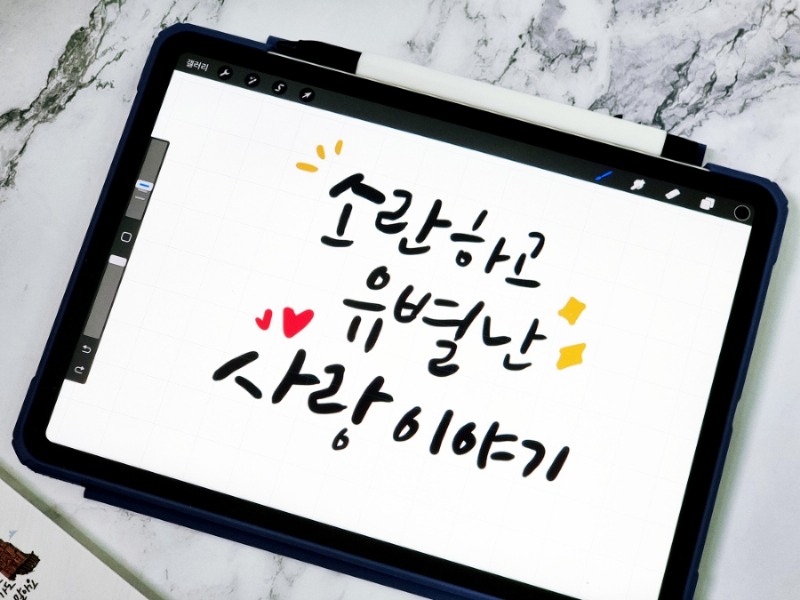 갤러리
소란하고
유별난
사랑 이야기